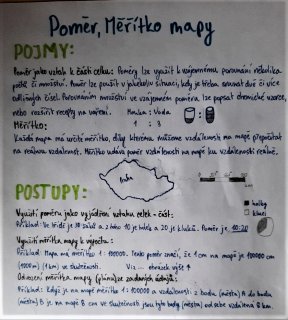 Poměr, Měřítko mapy
POJMY:
Poměr jako vztah k části celku: Poměry lze využít k vzájemnému porovnání několika
počtů či množství. Poměr lze použít v jakékoliv situaci, kdy je třeba srovnat dvě či více
odlišných čísel. Porovnáním množství ve vzájemném poměru, lze popsat chemické vzorce,
nebo rozšířit recepty na vaření. Mouka : Voda
Měřítko: 1 : 3
Každá mapa má určité měřítko, díky kterému můžeme vzdálenosti na mapě přepočítat
na reálnou vzdálenost. Měřítko udává poměr vzdálenosti na mapě ku vzdálenosti reálné.
POSTUPY:
holky
kluci
Využití poměru jako vyjádření vztahu celek - část:
Příklad: Ve třídě je 30 žáků a z toho 10 je holek a 20 je kluků. Poměr je 10:20
Využití měřítka mapy k výpočtu:
Příklad: Mapa má měřítko 1 : 100000. Tento poměr značí, že 1 cm na mapě je 100000 cm
(1000m) (1 km) ve skutečnosti. Viz... obrázek výše ↑
Odvození měřítka mapy (plánu) ze zadaných údajů:
Příklad: Když je na mapě měřítko 1 : 100000 a vzdálenosti z bodu (města) A do bodu
(města) B je na mapě 8 cm ve skutečnosti jsou tyto body (města) od sebe vzdálená 8 km.